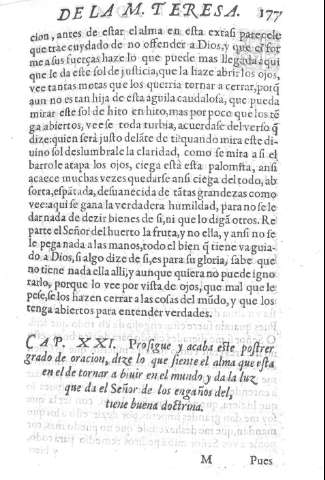 DE LA M. TERESA. 177
cion, antes de estar el alma en esta extasi parecele
que trae cuydado de no offender a Dios, y que
me a sus fuerças haze lo que puede mas llegada aqui
que le da este sol de justicia, que la haze abrir los ojos,
vee tantas motas que los querria tornar a cerrar, porq̃
aun no es tan hija de esta aguila caudalosa, que pueda
mirar este sol de hito en hito, mas por poco que los tẽ
ga abiertos, vee se toda turbia, acuerdase del verso q̃
dize: quien sera justo delãte de ti? quando mira este di
uino sol deslumbrale la claridad, como se mira a si el
barro le atapa los ojos, ciega está esta palomita, ansi
acaece muchas vezes quedarse ansi ciega del todo, ab
sorta, espãtada, desuanecida de tãtas grandezas como
vee: aqui se gana la verdadera humildad, para no se le
dar nada de dezir bienes de si, ni que lo digã otros. Re
parte el Señor del huerto la fruta, y no ella, y ansi no se
le pega nada a las manos, todo el bien q̃ tiene va guia-
do a Dios, si algo dize de si, es para su gloria, sabe que
no tiene nada ella alli, y aunque quiera no puede igno
rarlo, porque lo vee por vista de ojos, que mal que le
pese, se los hazen cerrar a las cosas del mũdo, y que los
tenga abiertos para entender verdades.
CAP. XXI. Prosigue y acaba este postrer
grado de oracion, dize lo que siente el alma que esta
en el de tornar a biuir en el mundo y da la luz
que da el Señor de los engaños del,
tiene buena doctrina.
M Pues